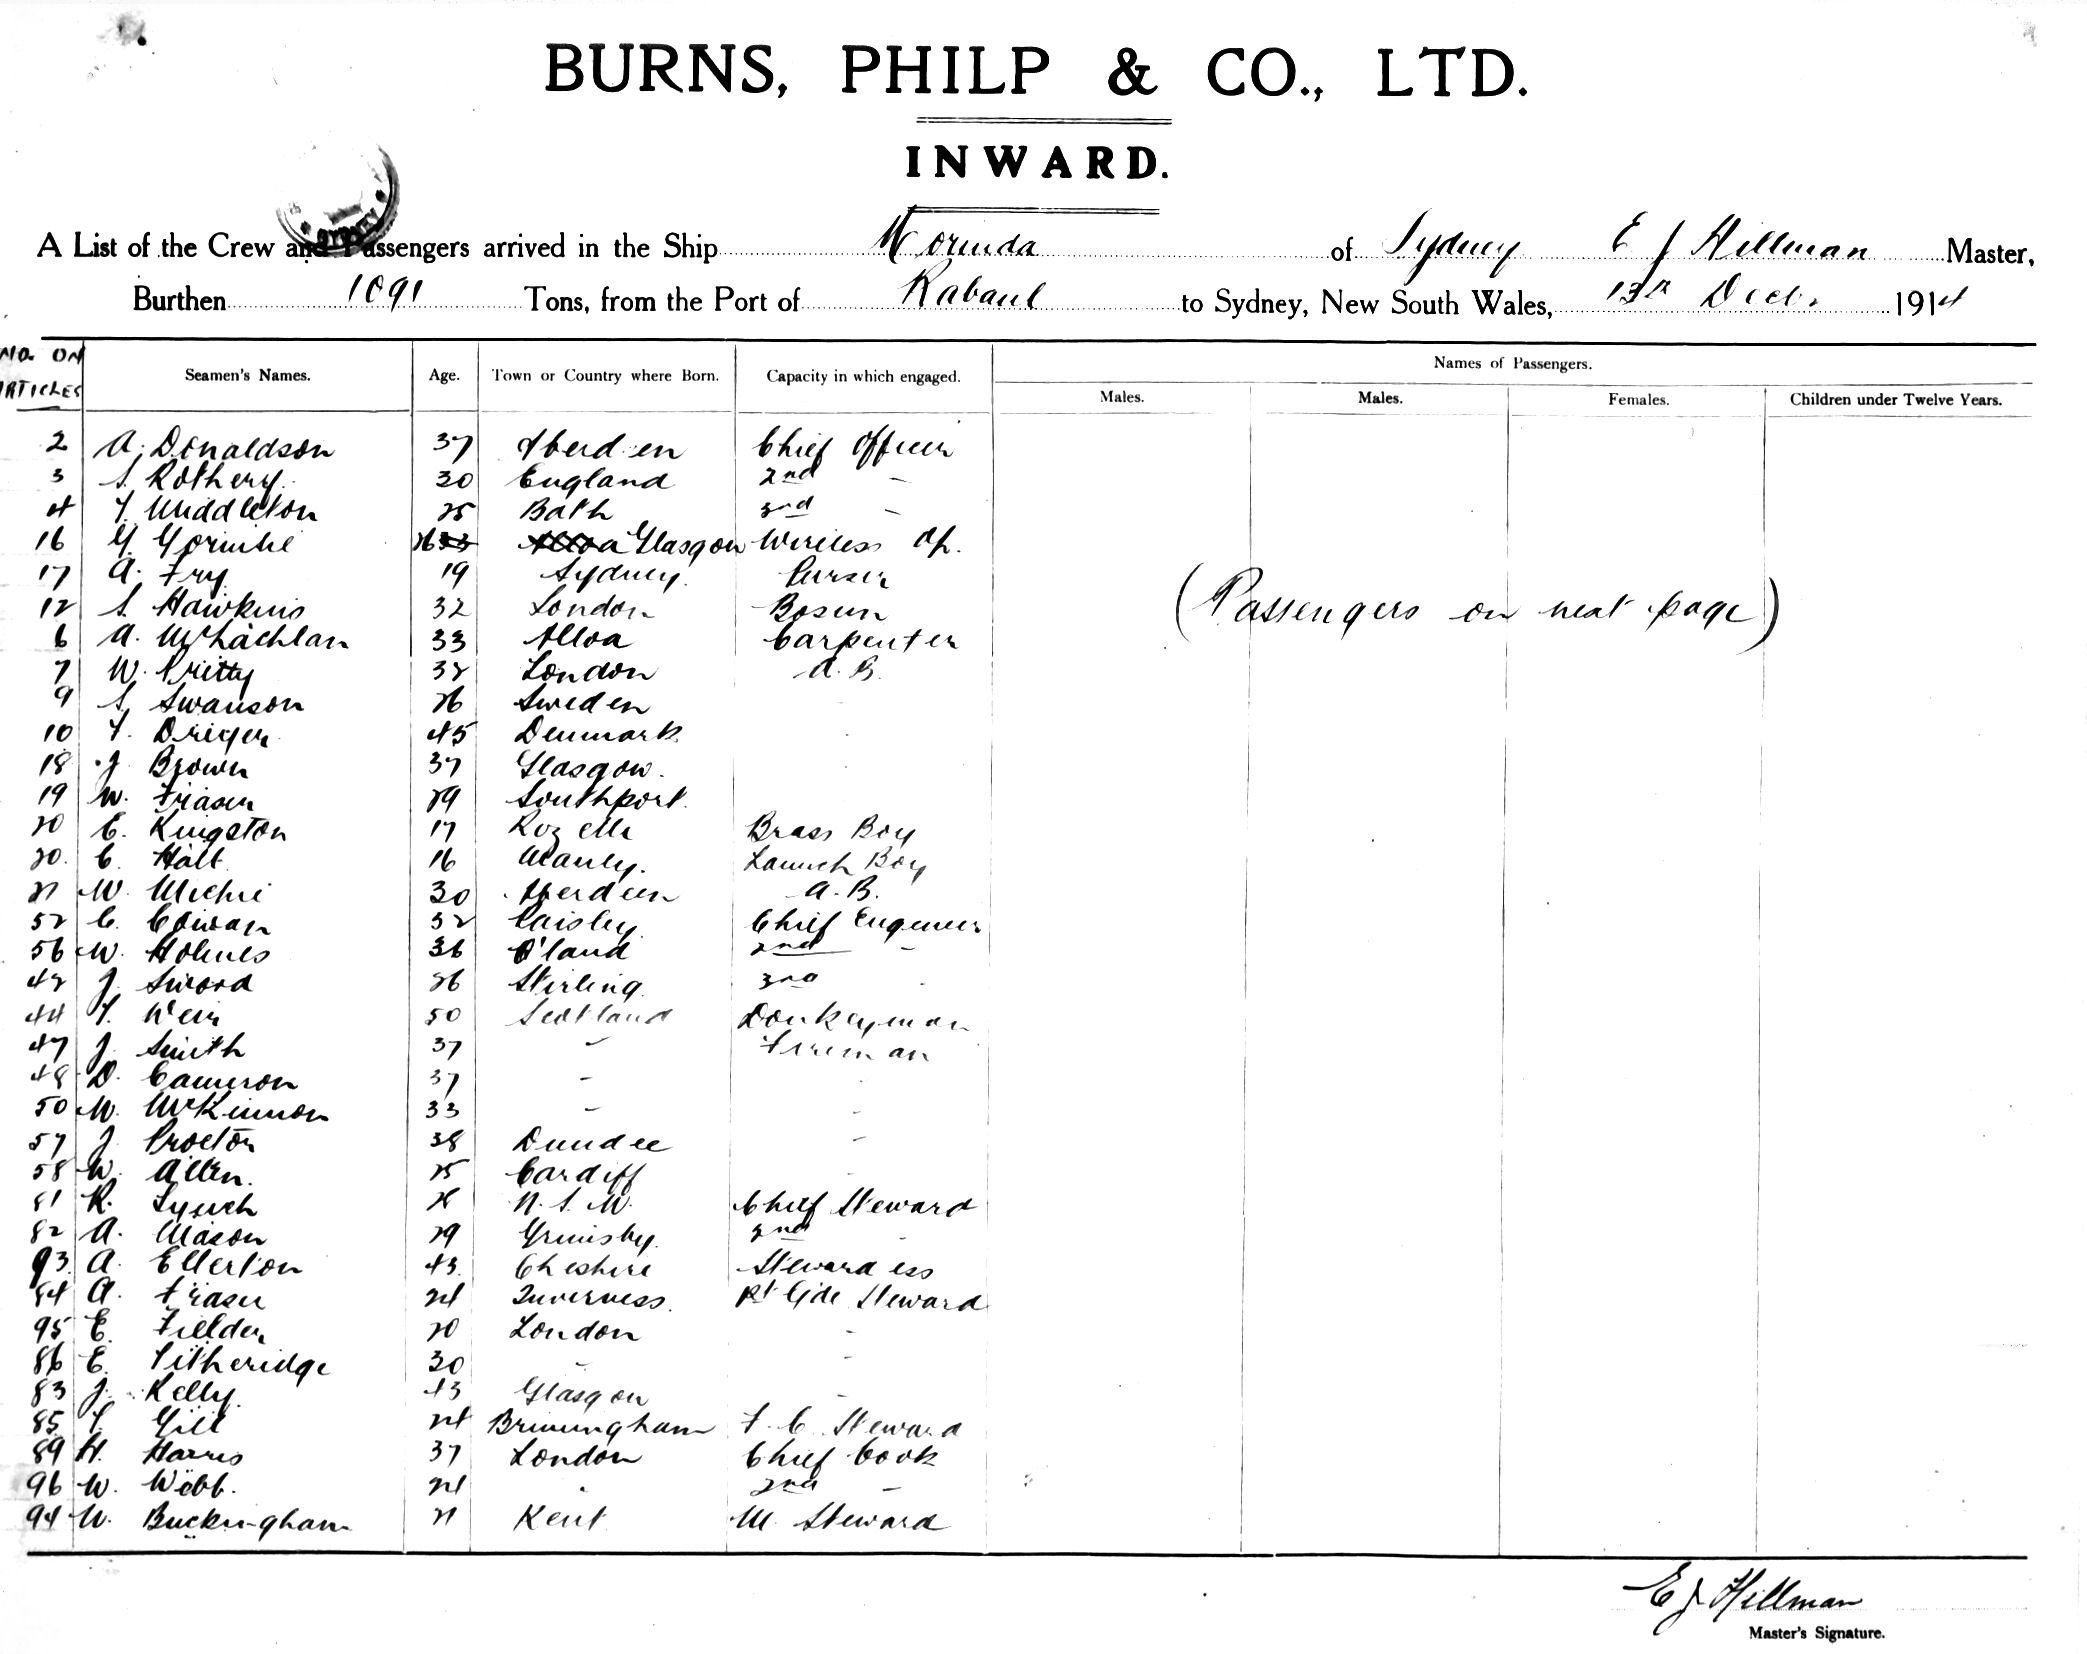 BURNS, PHILP & CO., LTD.
INWARD.
A List of the Crew and Passengers arrived in the Ship Morinda of Sydney E J Hillman Master,
Burthen 1091 Tons, from the Port of Rabaul to Sydney, New South Wales, 13th Decbr 1914
NO. ON ARTICLES Seamen's Names. Age. Town or Country where Born. Capacity in which engaged. Names of Passengers.
Males. Males. Females. Children under Twelve Years.
2 A. Donaldson 37 Aberdeen Chief Officer
3 S. Rothery 30 England 2nd -
4 T. Middleton 25 Bath 3rd -
16 G. 26 Glasgow Wireless Op.
17 A. Fry 19 Sydney. Purser
12 S. Hawkins 32 London Bosun
(Passengers on next page)
6 A. McLachlan 33 Alloa Carpenter
7 W. Pritty 32 London A.B.
9 S. Swanson 26 Sweden
10 T. Dreyer 45 Denmark
18 J Brown 37 Glasgow.
19 W. Fraser 29 Southport.
20 C. Kingston 17 Rozelle Brass Boy
20. C. Hall 16 Manly. Launch Boy
21 W. Michie 30 Aberdeen A.B.
52 C. Cowan 32 Paisley Chief Engineer
56 W. Holmes 36 2nd -
42 J. Sword 26 Stirling 3rd
44 T. Weir 50 Scotland Donkeyman
47 J. Smith 37 - Fireman
48 D. Cameron 37 -
50 W. McKinnon 33 - -
57 J. Proctor 38 Dundee -
58 W. Allen. 25 Cardiff -
81 R. Lynch N.S.W. Chief Steward
82 A. Mason 29 Grimsby. 2nd -
93 A. Ellerton 43 Cheshire Stewardess
84 A. Fraser 24 Inverness. Steward
95 E. Fielder 20 London -
86 E. Titheridge 30 - -
83 J. Kelly. 43 Glasgow -
85 T. Gill 24 Birmingham F.C. Steward
89 H. Harris 37 London Chief Cook
96 W. Webb. 24 - 2nd -
94 W. Buckingham 21 Kent M. Steward
E J Hillman
Master's Signature.